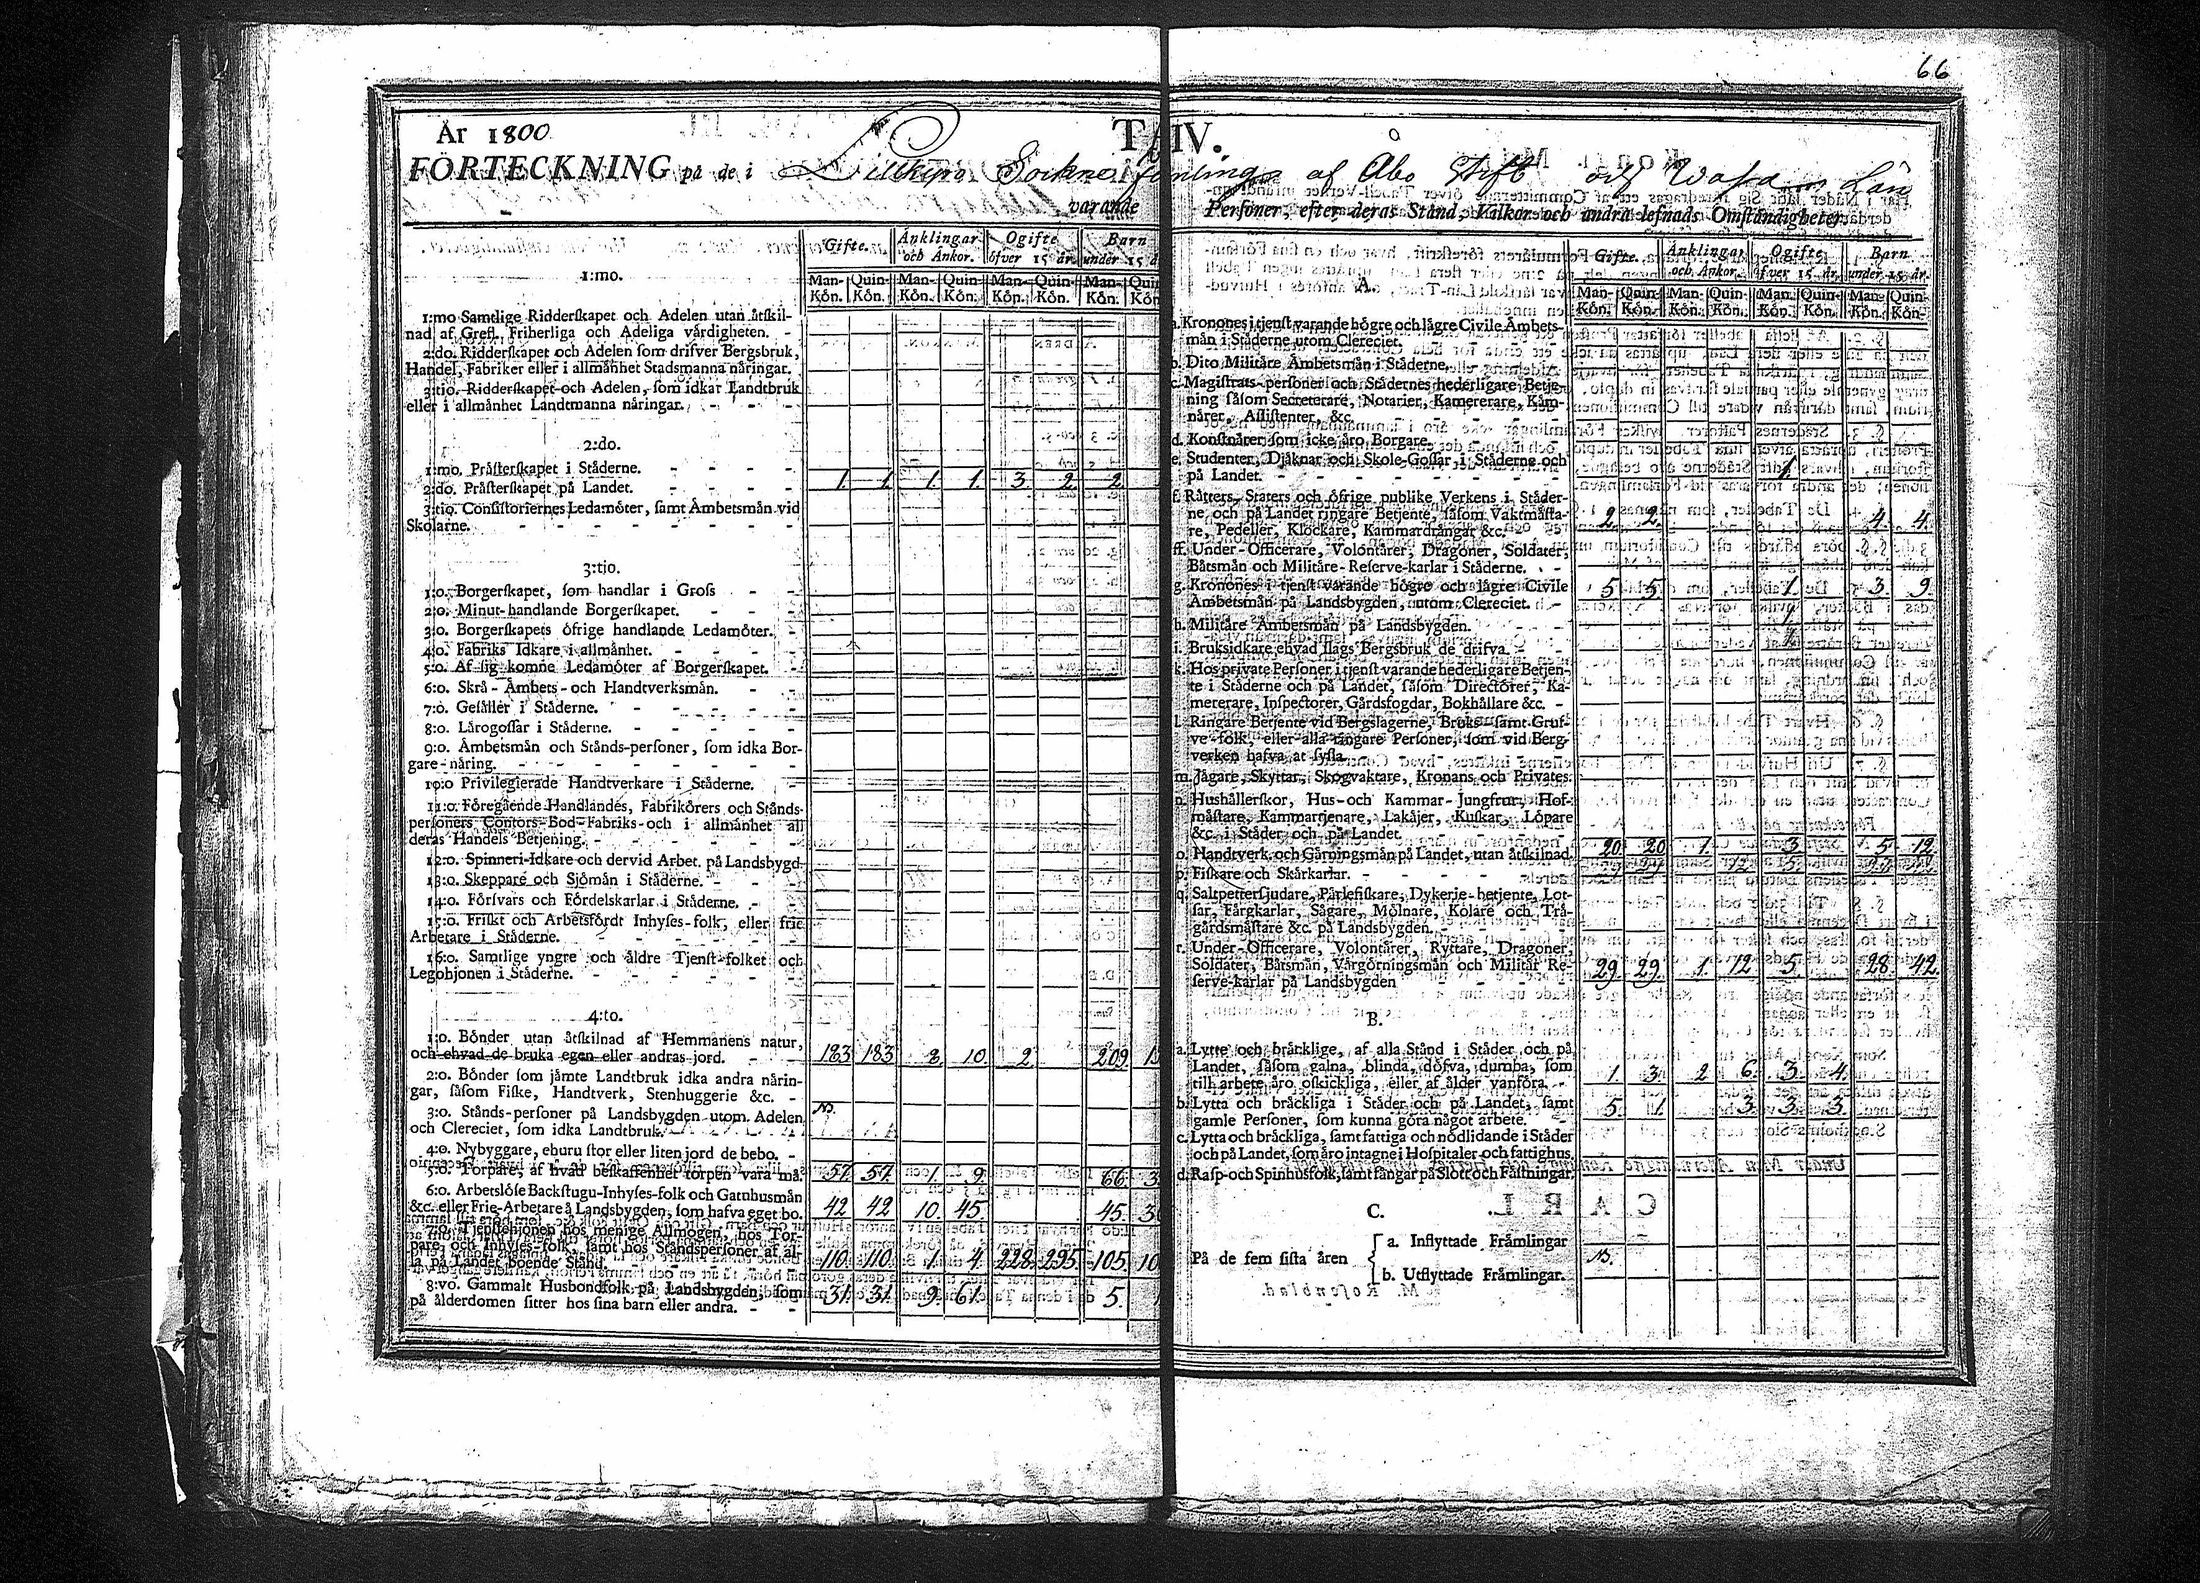 66
År 1800
TA IV.
FÖRTECKNING på de i Lillkyro Sockne församling af Åbo Stift och Wasa Län
varande Personer, efter deras Stånd, Vilkor och andra lefnads Omständigheter.
Gifte. Änklingar och Ankor. Ogifte öfver 15 år. Barn under 15 å
Man-Kön. Quin-Kön. Man-Kön. Quin-Kön. Man-Kön. Quin-Kön. Man-Kön. Quin Kön
1:mo.
1:mo Samtlige Ridderskapet och Adelen utan åtskil-
nad af Grefl. Friherliga och Adeliga värdigheten. -
2:do. Ridderskapet och Adelen som drifver Bergsbruk,
Handel, Fabriker eller i allmänhet Stadsmanna näringar.
3:tio. Ridderskapet och Adelen, som idkar Landtbruk
eller i allmänhet Landtmanna näringar. - - -
2:do.
1:mo. Prästerskapet i Städerne. - - - -
2:do. Prästerskapet på Landet. - - - - 1. 1. 1. 1. 3. 2. 2.
3:tio. Consistoriernes Ledamöter, samt Ämbetsmän vid
Skolarne. - - - - - - -
3:tio.
1:o. Borgerskapet, som handlar i Gross - -
2:o. Minut-handlande Borgerskapet. - - -
3:o. Borgerskapets öfrige handlande Ledamöter. -
4:o. Fabriks Idkare i allmänhet. - - - -
5:o. Af sig komne Ledamöter af Borgerskapet. -
6:o. Skrå-Ämbets-och Handtverksmän. - -
7:o. Gesäller i Städerne. - - - - -
8:o. Lärogossar i Städerne. - - - - -
9:o. Ämbetsmän och Stånds-personer, som idka Bor-
gare-näring. - - - - - - - -
10:o Privilegierade Handtverkare i Städerne. -
11:o. Föregående Handlandes, Fabrikörers och Stånds-
personers Contors-Bod-Fabriks-och i allmänhet all
deras Handels Betjening. - - - - -
12:o. Spinneri-Idkare och dervid Arbet. på Landsbygd
13:o. Skeppare och Sjömän i Städerne. - - -
14:o. Försvars och Fördelskarlar i Städerne. - -
15:o. Friskt och Arbetsfördt Inhyses-folk, eller frie
Arbetare i Städerne. - - - - - -
16:o. Samtlige yngre och äldre Tjenst-folket och
Legohjonen i Städerne. - - - - - -
4:to.
1:o. Bönder utan åtskilnad af Hemmanens natur,
och ehvad de bruka egen eller andras jord. - - 183 183 8. 10. 2. 209.
2:o. Bönder som jämte Landtbruk idka andra närin-
gar, såsom Fiske, Handtverk, Stenhuggerie &c. -
3:o. Stånds-personer på Landsbygden utom Adelen
och Clereciet, som idka Landtbruk.
4:o. Nybyggare, ehuru stor eller liten jord de bebo. -
5:o. Torpare, af hvad beskaffenhet torpen vara må. 57. 57. 1. 9. 66.
6:o. Arbetslöse Backstugu-Inhyses-folk och Gatuhusmän
&c. eller Frie-Arbetare å Landsbygden, som hafva eget bo. 42 42 10. 45. 45.
7:o. Tjenstehjonen hos menige Allmogen, hos Tor-
pare, och Inhyses-folk, samt hos Ståndspersoner af al-
la på Landet boende Stånd. 110. 110. 1. 4. 228. 295. 105.
8:vo. Gammalt Husbondfolk på Landsbygden, som
på ålderdomen sitter hos sina barn eller andra. - - 31. 31. 9. 61. 5.
Gifte. Änklingar och Ankor. Ogifte öfver 15 år. Barn under 15 år.
Man-Kön. Quin-Kön. Man-Kön. Quin-Kön. Man-Kön. Quin-Kön. Man-Kön. Quin-Kön.
A.
a. Kronones i tjenst varande högre och lägre Civile Ämbets-
män i Städerne utom Clereciet.
b. Dito Militäre Ämbetsmän i Städerne.
c. Magistrats-personer och Städernes hederligare Betje-
ning såsom Secreterare, Notarier, Kamererare, Käm-
närer, Assistenter, &c.
d. Konstnärer som icke äro Borgare.
e. Studenter, Djäknar och Skole-Gossar i Städerne och
på Landet. - - - - - - - 1.
f. Rätters, Staters och öfrige publike Verkens i Städer-
ne, och på Landet ringare Betjente, såsom Vaktmästa-
re, Pedeller, Klockare, Kammardrängar &c. - 2. 2. 4. 4.
ff. Under-Officerare, Volontärer, Dragoner, Soldater,
Båtsmän och Militäre-Reserve-karlar i Städerne. - -
g. Kronones i tjenst varande högre och lägre Civile
Ämbetsmän på Landsbygden, utom Clereciet. - 5 5 1. 3. 9.
h. Militäre Ämbetsmän på Landsbygden. - - 1.
i. Bruksidkare ehvad slags Bergsbruk de drifva. - -
k. Hos private Personer i tjenst varande hederligare Betjen-
te i Städerne och på Landet, såsom Directörer, Ka-
mererare, Inspectorer, Gårdsfogdar, Bokhållare &c. -
l. Ringare Betjente vid Bergslagerne, Bruks-samt Gruf-
ve-folk, eller alla ringare Personer, som vid Berg-
verken hafva at syssla.
m. Jägare, Skyttar, Skogvaktare, Kronans och Privates.
n. Hushållerskor, Hus-och Kammar-Jungfrur, Hof-
mästare, Kammartjenare, Lakåjer, Kuskar, Löpare
&c. i Städer och på Landet.
o. Handtverk och Gärningsmän på Landet, utan åtskilnad. 20. 20. 1. 3. 5. 12.
p. Fiskare och Skärkarlar. - - - - - -
q. Saltpettersjudare, Pärlefiskare, Dykerie-betjente, Lot-
sar, Färgkarlar, Sågare, Mölnare, Kolare och Trä-
gårdsmästare &c. på Landsbygden. - - - -
r. Under-Officerare, Volontärer, Ryttare, Dragoner,
Soldater, Båtsmän, Vargöringsmän och Militär Re-
serve-karlar på Landsbygden - - - - 29. 29. 1. 12 5. 28. 42.
B.
a. Lytte och bräcklige, af alla Stånd i Städer och på
Landet, såsom galna, blinda, döfva, dumba, som
till arbete äro oskickliga, eller af ålder vanföra. - - 1. 3. 2 6. 3. 4.
b. Lytta och bräckliga i Städer och på Landet, samt
gamle Personer, som kunna göra något arbete. - 5. 1. 3. 3. 3.
c. Lytta och bräckliga, samt fattiga och nödlidande i Städer
och på Landet, som äro intagne i Hospitaler och fattighus.
d. Rasp-och Spinhusfolk, samt fångar på Slott och Fästningar.
C.
På de fem sista åren
a. Inflyttade Främlingar
b. Utflyttade Främlingar.